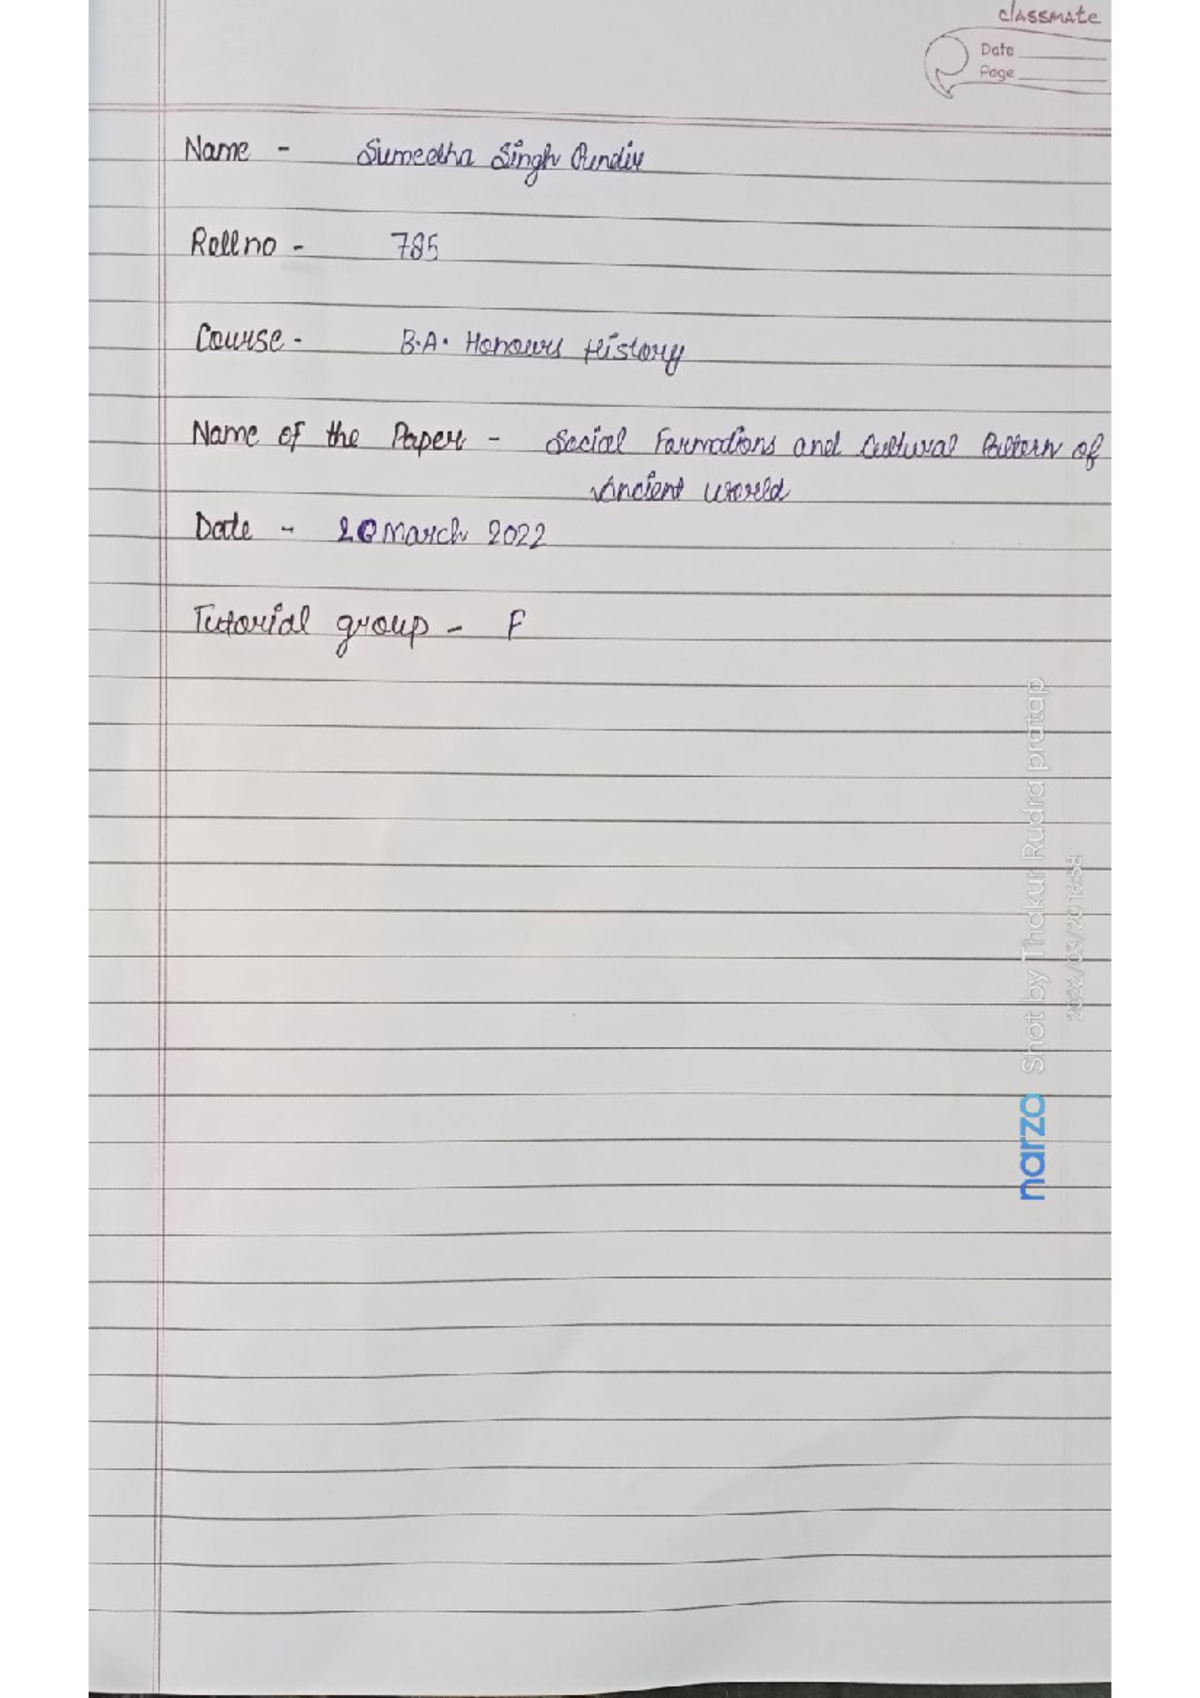 classmate
Date
Page
Name - Sumeetha Singh Pundir
Roll no - 785
Course - B.A. Honours History
Name of the Paper - Social Formations and Cultural Pattern of
Ancient World
Date - 20 March 2022
Tutorial group - F
narzo Shot by Thakur Rudra pratap
2022/03/20 16:58